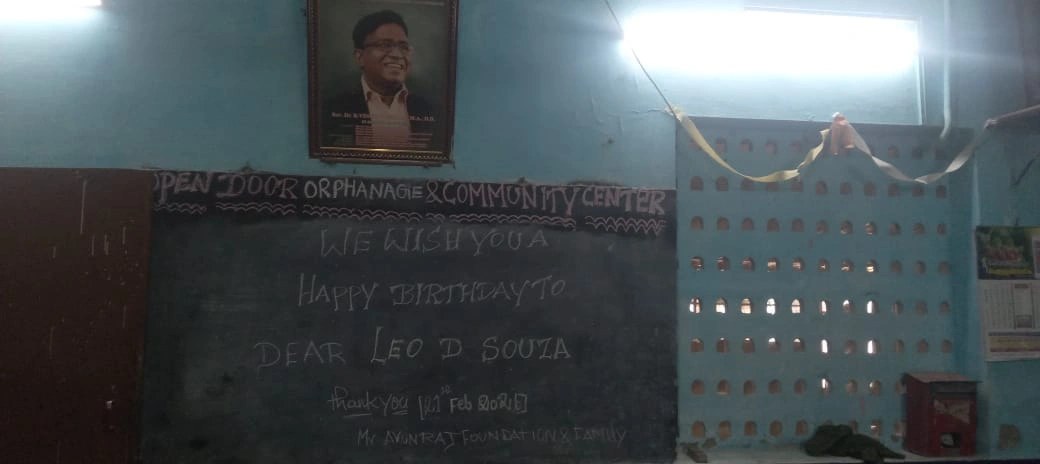 M.A., D.D.
OPEN DOOR ORPHANAGE & COMMUNITY CENTER
WE WISH YOU A
HAPPY BIRTHDAY TO
DEAR LEO D SOUZA
thank you
Feb
Mr AVUNRAJ FOUNDATION & FAMILY